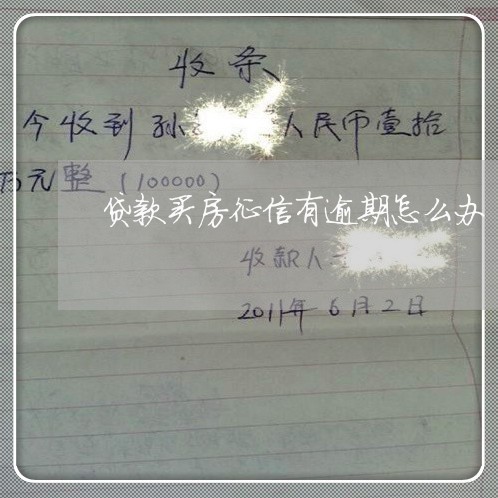 收条
今收到孙 人民币壹拾
万元整（100000）
贷款买房征信有逾期怎么办
收款人
2011年6月2日